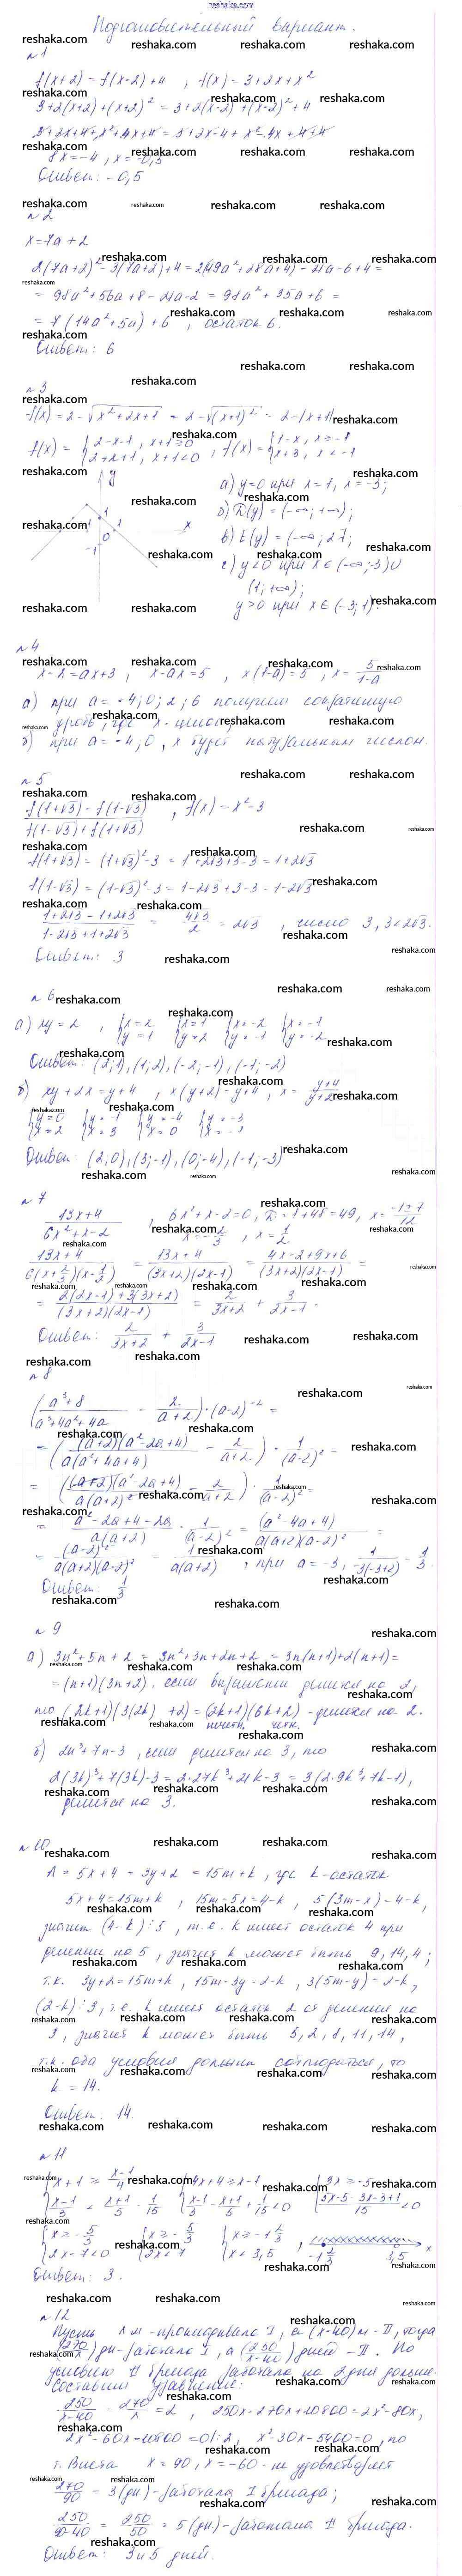 reshaka.com
Подготовительный вариант.
№1
f(x+2) = f(x-2)+4 , f(x) = 3+2x+x²
3+2(x+2)+(x+2)² = 3+2(x-2)+(x-2)²+4
3+2x+4+x²+4x+4 = 3+2x-4+x²-4x+4+4
8x=-4, x=-0,5
Ответ: -0,5
№2
x=7a+2
2(7a+2)²-3(7a+2)+4 = 2(49a²+28a+4)-21a-6+4=
= 98a²+56a+8-21a-2 = 98a²+35a+6 =
= 7(14a²+5a)+6 , остаток 6.
Ответ: 6
№3
f(x) = 2-√x²+2x+1 = 2-√(x+1)² = 2-|x+1|
f(x) = { 2-x-1, x+1≥0 , f(x) = { 1-x, x≥-1
2+x+1, x+1<0 x+3, x<-1
а) y=0 при x=1, x=-3;
б) D(y) = (-∞; +∞);
в) E(y) = (-∞; 2];
г) y<0 при x∈(-∞;-3)∪
(1;+∞);
y>0 при x∈(-3;1).
№4
x-2=ax+3, x-ax=5, x(1-a)=5, x=5/(1-a)
а) при a=-4; 0; 2; 6 получим сократимую
дробь, где x-целое;
б) при a=-4; 0, x будет натуральным числом.
№5
(f(1+√3)-f(1-√3))/(f(1-√3)+f(1+√3)) , f(x)=x²-3
f(1+√3) = (1+√3)²-3 = 1+2√3+3-3 = 1+2√3
f(1-√3) = (1-√3)²-3 = 1-2√3+3-3 = 1-2√3
(1+2√3-1+2√3)/(1-2√3+1+2√3) = 4√3/2 = 2√3 , число 3, 3<2√3.
Ответ: 3
№6
а) xy=2 , {x=2 y=1 {x=1 y=2 {x=-2 y=-1 {x=-1 y=-2
Ответ: (2;1), (1;2), (-2;-1), (-1;-2)
б) xy+2x=y+4, x(y+2)=y+4, x=(y+4)/(y+2)
{y=0 x=2 {y=-1 x=3 {y=-4 x=0 {y=-3 x=-1
Ответ: (2;0), (3;-1), (0;-4), (-1;-3)
№7
(13x+4)/(6x²+x-2) , 6x²+x-2=0, D=1+48=49, x=(-1±7)/12
x=-2/3, x=1/2
(13x+4)/(6(x+2/3)(x-1/2)) = (13x+4)/((3x+2)(2x-1)) = (4x-2+9x+6)/((3x+2)(2x-1)) =
= (2(2x-1)+3(3x+2))/((3x+2)(2x-1)) = 2/(3x+2) + 3/(2x-1).
Ответ: 2/(3x+2) + 3/(2x-1)
№8
((a³+8)/(a³+4a²+4a) - 2/(a+2))·(a-2)⁻² =
= ((a+2)(a²-2a+4)/(a(a²+4a+4)) - 2/(a+2)) · 1/(a-2)² =
= ((a+2)(a²-2a+4)/(a(a+2)²) - 2/(a+2)) · 1/(a-2)² =
= (a²-2a+4-2a)/(a(a+2)) · 1/(a-2)² = (a²-4a+4)/(a(a+2)(a-2)²) =
= (a-2)²/(a(a+2)(a-2)²) = 1/(a(a+2)) , при a=-3, 1/(-3(-3+2)) = 1/3.
Ответ: 1/3
№9
а) 3n²+5n+2 = 3n²+3n+2n+2 = 3n(n+1)+2(n+1)=
=(n+1)(3n+2). если выражении делится на 2,
то (2k+1)(3(2k)+2)=(2k+1)(6k+2) - делится на 2.
нечетн. четн.
б) 2n³+7n-3, если делится на 3, то
2(3k)³+7(3k)-3=2·27k³+21k-3=3(2·9k³+7k-1),
делится на 3.
№10
A = 5x+4 = 3y+2 = 15m+k, где k-остаток
5x+4=15m+k, 15m-5x=4-k, 5(3m-x)=4-k,
значит (4-k)⋮5, т.е. k имеет остаток 4 при
делении на 5, значит k может быть 9, 14, 4;
т.к. 3y+2=15m+k, 15m-3y=2-k, 3(5m-y)=2-k,
(2-k)⋮3, т.е. k имеет остаток 2 от деления на
3, значит k может быть 5, 2, 8, 11, 14,
т.к. оба условия должны соблюдаться, то
k = 14.
Ответ: 14.
№11
{x+1 ≥ (x-1)/4 {4x+4≥x-1 {3x≥-5
(x-1)/3 < (x+1)/5 - 1/15 (x-1)/3 - (x+1)/5 + 1/15 <0 (5x-5-3x-3+1)/15 <0
{x≥-5/3 {x≥-5/3 {x≥-1 2/3
2x-7<0 2x<7 x<3,5 , -1 2/3 3,5 x
Ответ: 3.
№12
Пусть x м - прокладывала I, а (x-40) м - II, тогда
(270/x) дн-работала I, а (250/(x-40)) дней - II. По
условию II бригада работала на 2 дня дольше.
Составим уравнение:
250/(x-40) - 270/x = 2 , 250x-270x+10800=2x²-80x,
2x²-60x-10800=0 |:2, x²-30x-5400=0, по
т. Виета x=90, x=-60 - не удовлетворяет
270/90 = 3(дн)-работала I бригада;
250/(90-40) = 250/50 = 5(дн)-работала II бригада.
Ответ: 3 и 5 дней.